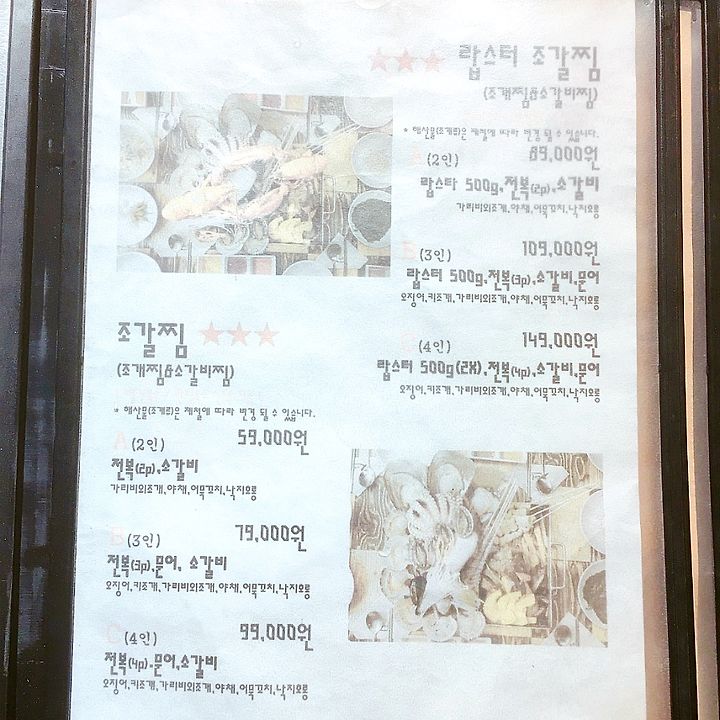 ★★★ 랍스터 조갈찜
(조개찜&소갈비찜)
* 해산물(조개류)은 제철에 따라 변경 될 수 있습니다.
A (2인) 89,000원
랍스타 500g,전복(2p),소갈비
가리비외조개,야채,어묵꼬치,낙지호롱
B (3인) 109,000원
랍스터 500g,전복(3p),소갈비,문어
오징어,키조개,가리비외조개,야채,어묵꼬치,낙지호롱
C (4인) 149,000원
랍스터 500g(2X),전복(4p),소갈비,문어
오징어,키조개,가리비외조개,야채,어묵꼬치,낙지호롱
조갈찜 ★★★
(조개찜&소갈비찜)
* 해산물(조개류)은 제철에 따라 변경 될 수 있습니다.
A (2인) 59,000원
전복(2p),소갈비
가리비외조개,야채,어묵꼬치,낙지호롱
B (3인) 79,000원
전복(3p),문어, 소갈비
오징어,키조개,가리비외조개,야채,어묵꼬치,낙지호롱
C (4인) 99,000원
전복(4p),문어,소갈비
오징어,키조개,가리비외조개,야채,어묵꼬치,낙지호롱